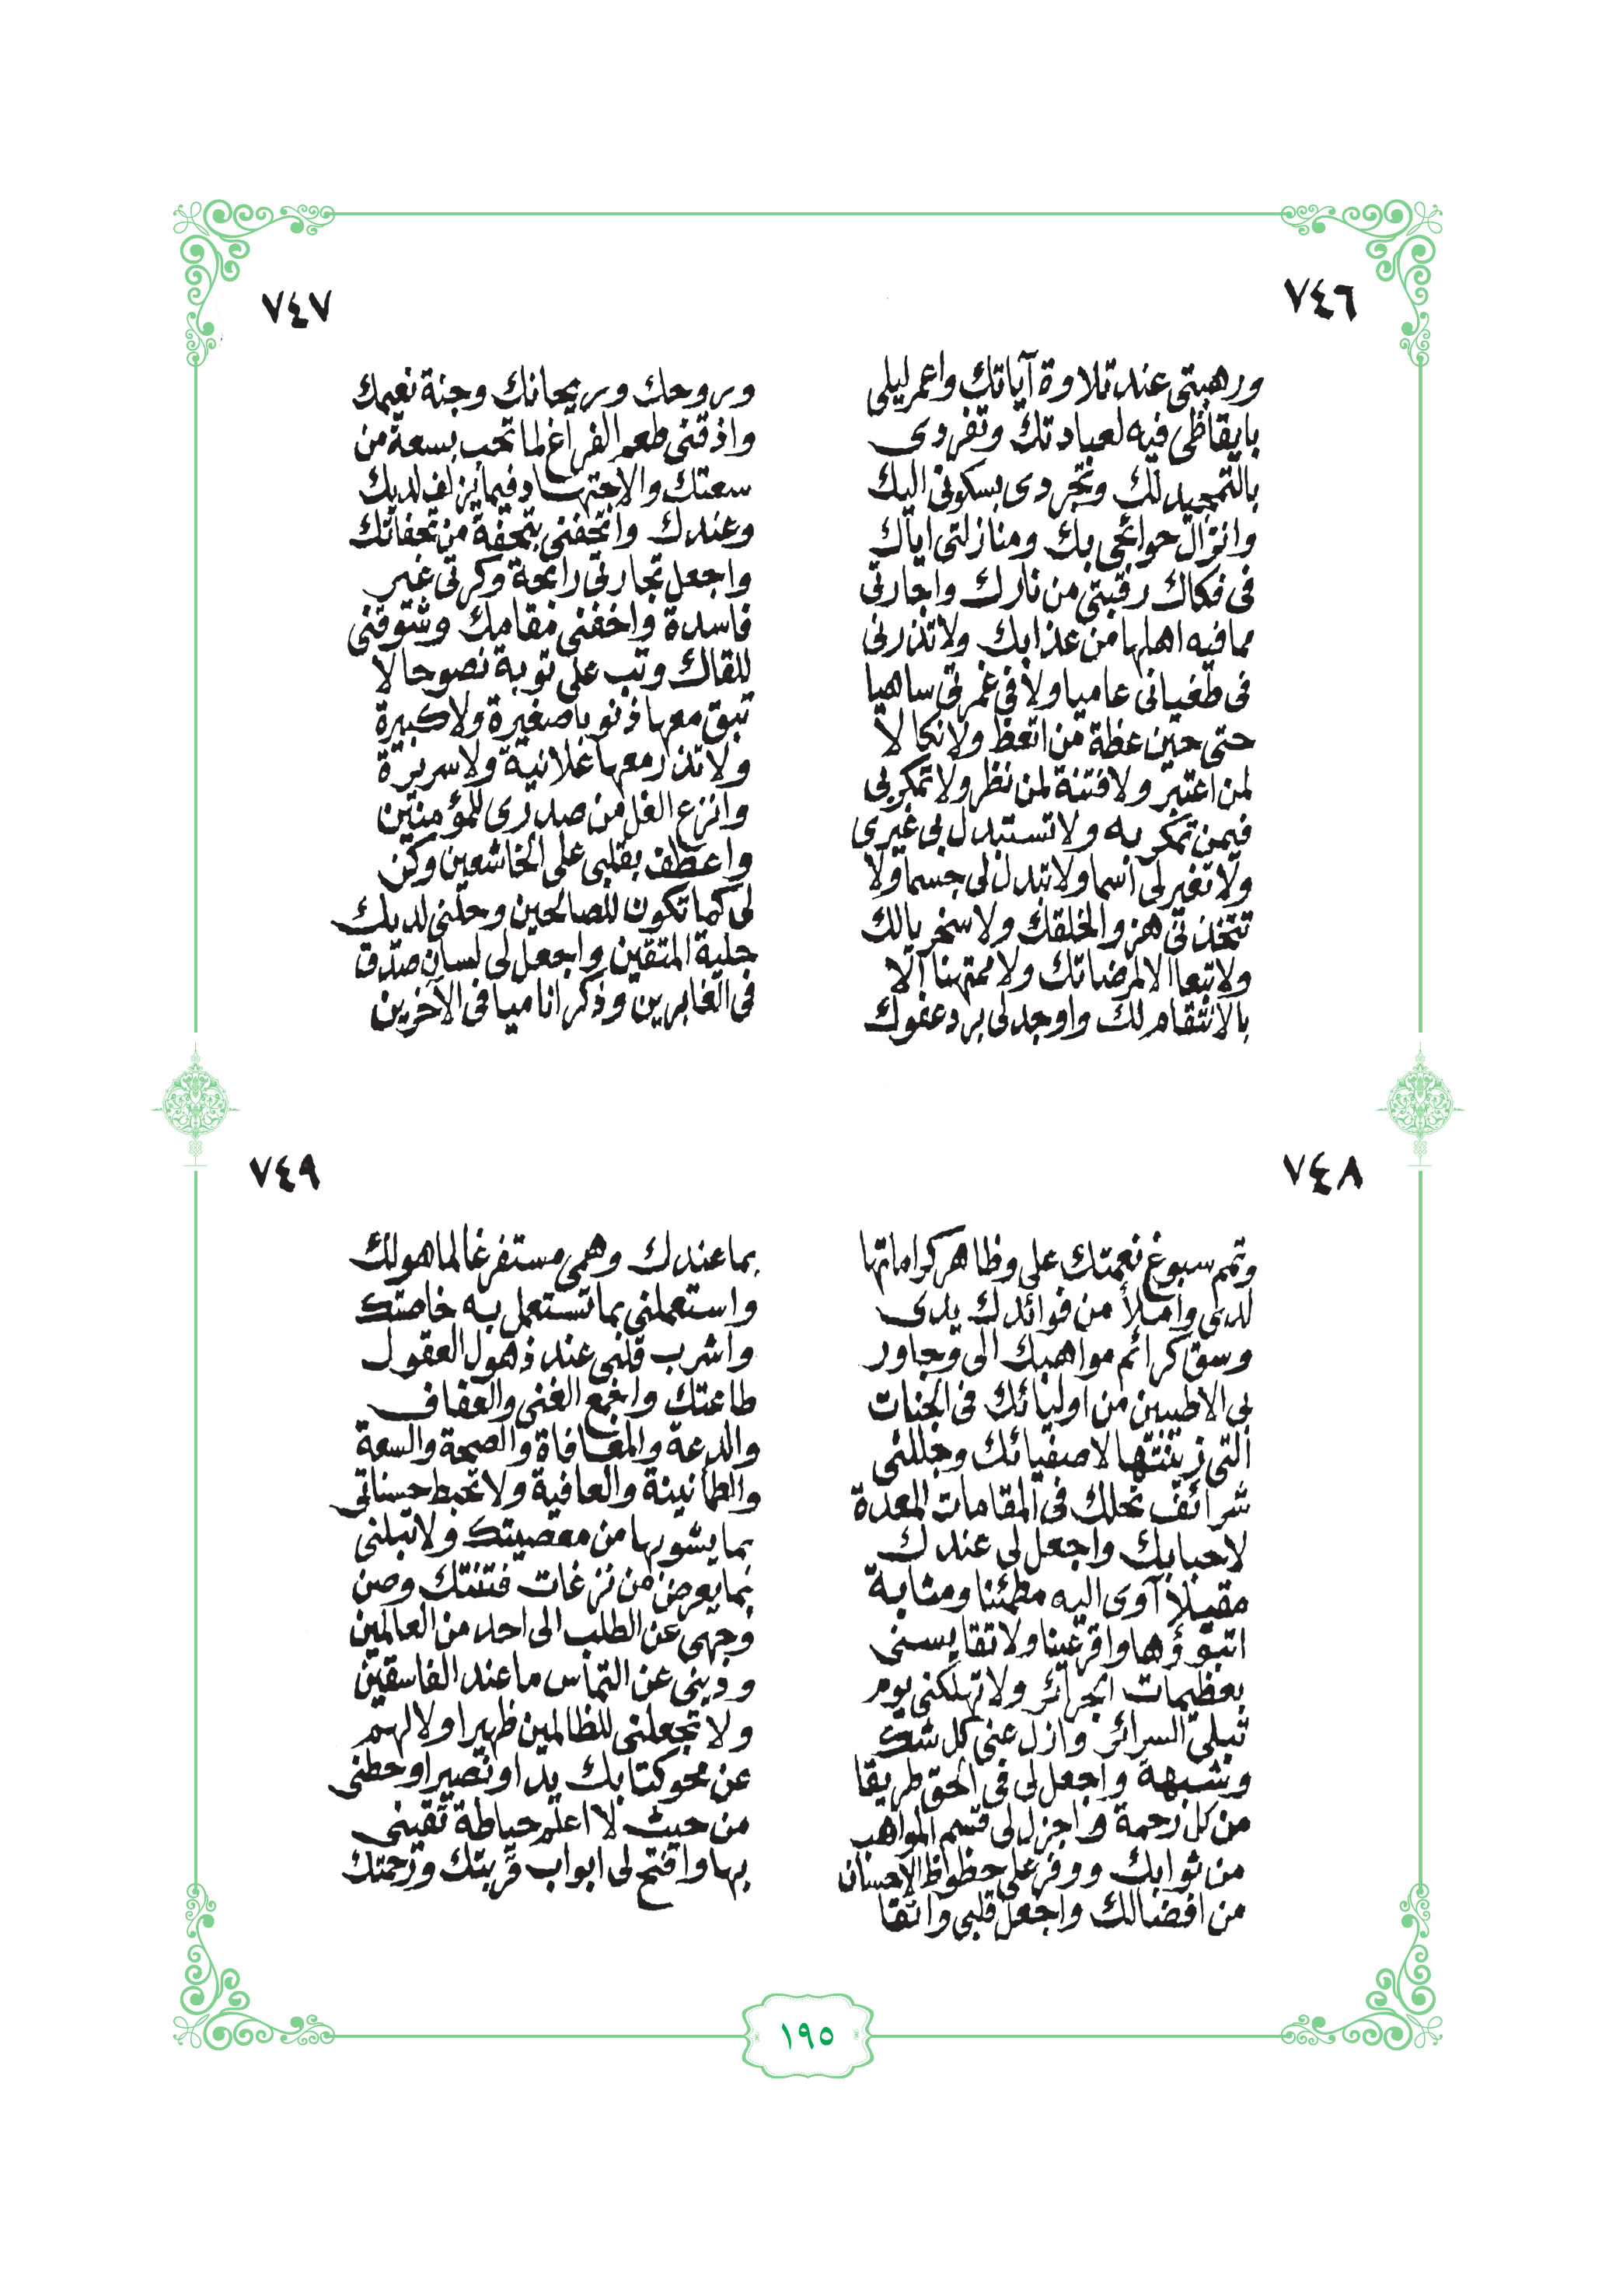 ٧٤٦
ورهبتى عند تلاوة آياتك واعمر ليلى
بايقاظى فيه لعبادتك وتفردى
بالتمجيد لك وتجردى بسكونى اليك
وانزال حوائجى بك ومنازلتى اياك
فى فكاك رقبتى من نارك واجارتى
مما فيه اهلها من عذابك ولا تذرنى
فى طغيانى عاميا ولا فى غمرتى ساهيا
حتى حين عظة من اتعظ ولا نكالا
لمن اعتبر ولا فتنة لمن نظر ولا تمكر بى
فيمن تمكر به ولا تستبدل بى غيرى
ولا تغير لى اسما ولا تبدل لى جسما ولا
تتخذنى هزوا لخلقك ولا سخريا لك
ولا تبعا الا لمرضاتك ولا ممتهنا الا
بالانتقام لك واوجدلى برد عفوك
٧٤٧
وروحك وريحانك وجنة نعيمك
واذقنى طعم الفراغ لما تحب بسعة من
سعتك والاجتهاد فيما يزلف لديك
وعندك واتحفنى بتحفة من تحفاتك
واجعل تجارتى رابحة وكرتى غير
فاسدة واخفنى مقامك وشوقنى
للقاك وتب على توبة نصوحا لا
تبق معها ذنوبا صغيرة ولا كبيرة
ولا تذر معها علانية ولا سريرة
وانزع الغل من صدرى للمؤمنين
واعطف بقلبى على الخاشعين وكن
لى كما تكون للصالحين وحلنى لديك
حلية المتقين واجعل لى لسان صدق
فى الغابرين وذكرا ناميا فى الآخرين
٧٤٨
وتمم سبوغ نعمتك على وظاهر كراماتها
لدى واملأ من فوائدك يدى
وسق كرائم مواهبك الى وجاور
بى الاطيبين من اوليائك فى الجنات
التى زينتها لاصفيائك وجللنى
شرائف نحلك فى المقامات المعدة
لاحبابك واجعل لى عندك
مقيلا آوى اليه مطمئنا ومثابة
اتبوؤها واقر عينا ولا تقايسنى
بعظيمات الجرائر ولا تهلكنى يوم
تبلى السرائر وازل عنى كل شك
وشبهة واجعل لى فى الحق طريقا
من كل رحمة واجزل لى قسم المواهب
من ثوابك ووفر على حظوظ الاحسان
من افضالك واجعل قلبى واثقا
٧٤٩
بما عندك وهمى مستفرغا لما هو لك
واستعملنى بما تستعمل به خاصتك
واشرب قلبى عند ذهول العقول
طاعتك واجمع الغنى والعفاف
والدعة والمعافاة والصحة والسعة
والطمأنينة والعافية ولا تحبط حسناتى
بما يشوبها من معصيتك ولا تبلنى
بما يعرض من نزغات فتنتك وصن
وجهى عن الطلب الى احد من العالمين
وذبنى عن التماس ما عند الفاسقين
ولا تجعلنى للظالمين ظهيرا ولا لهم
عن محو كتابك يدا ونصيرا وحطنى
من حيث لا اعلم حياطة تقينى
بها وافتح لى ابواب قربتك ورحمتك
١٩٥